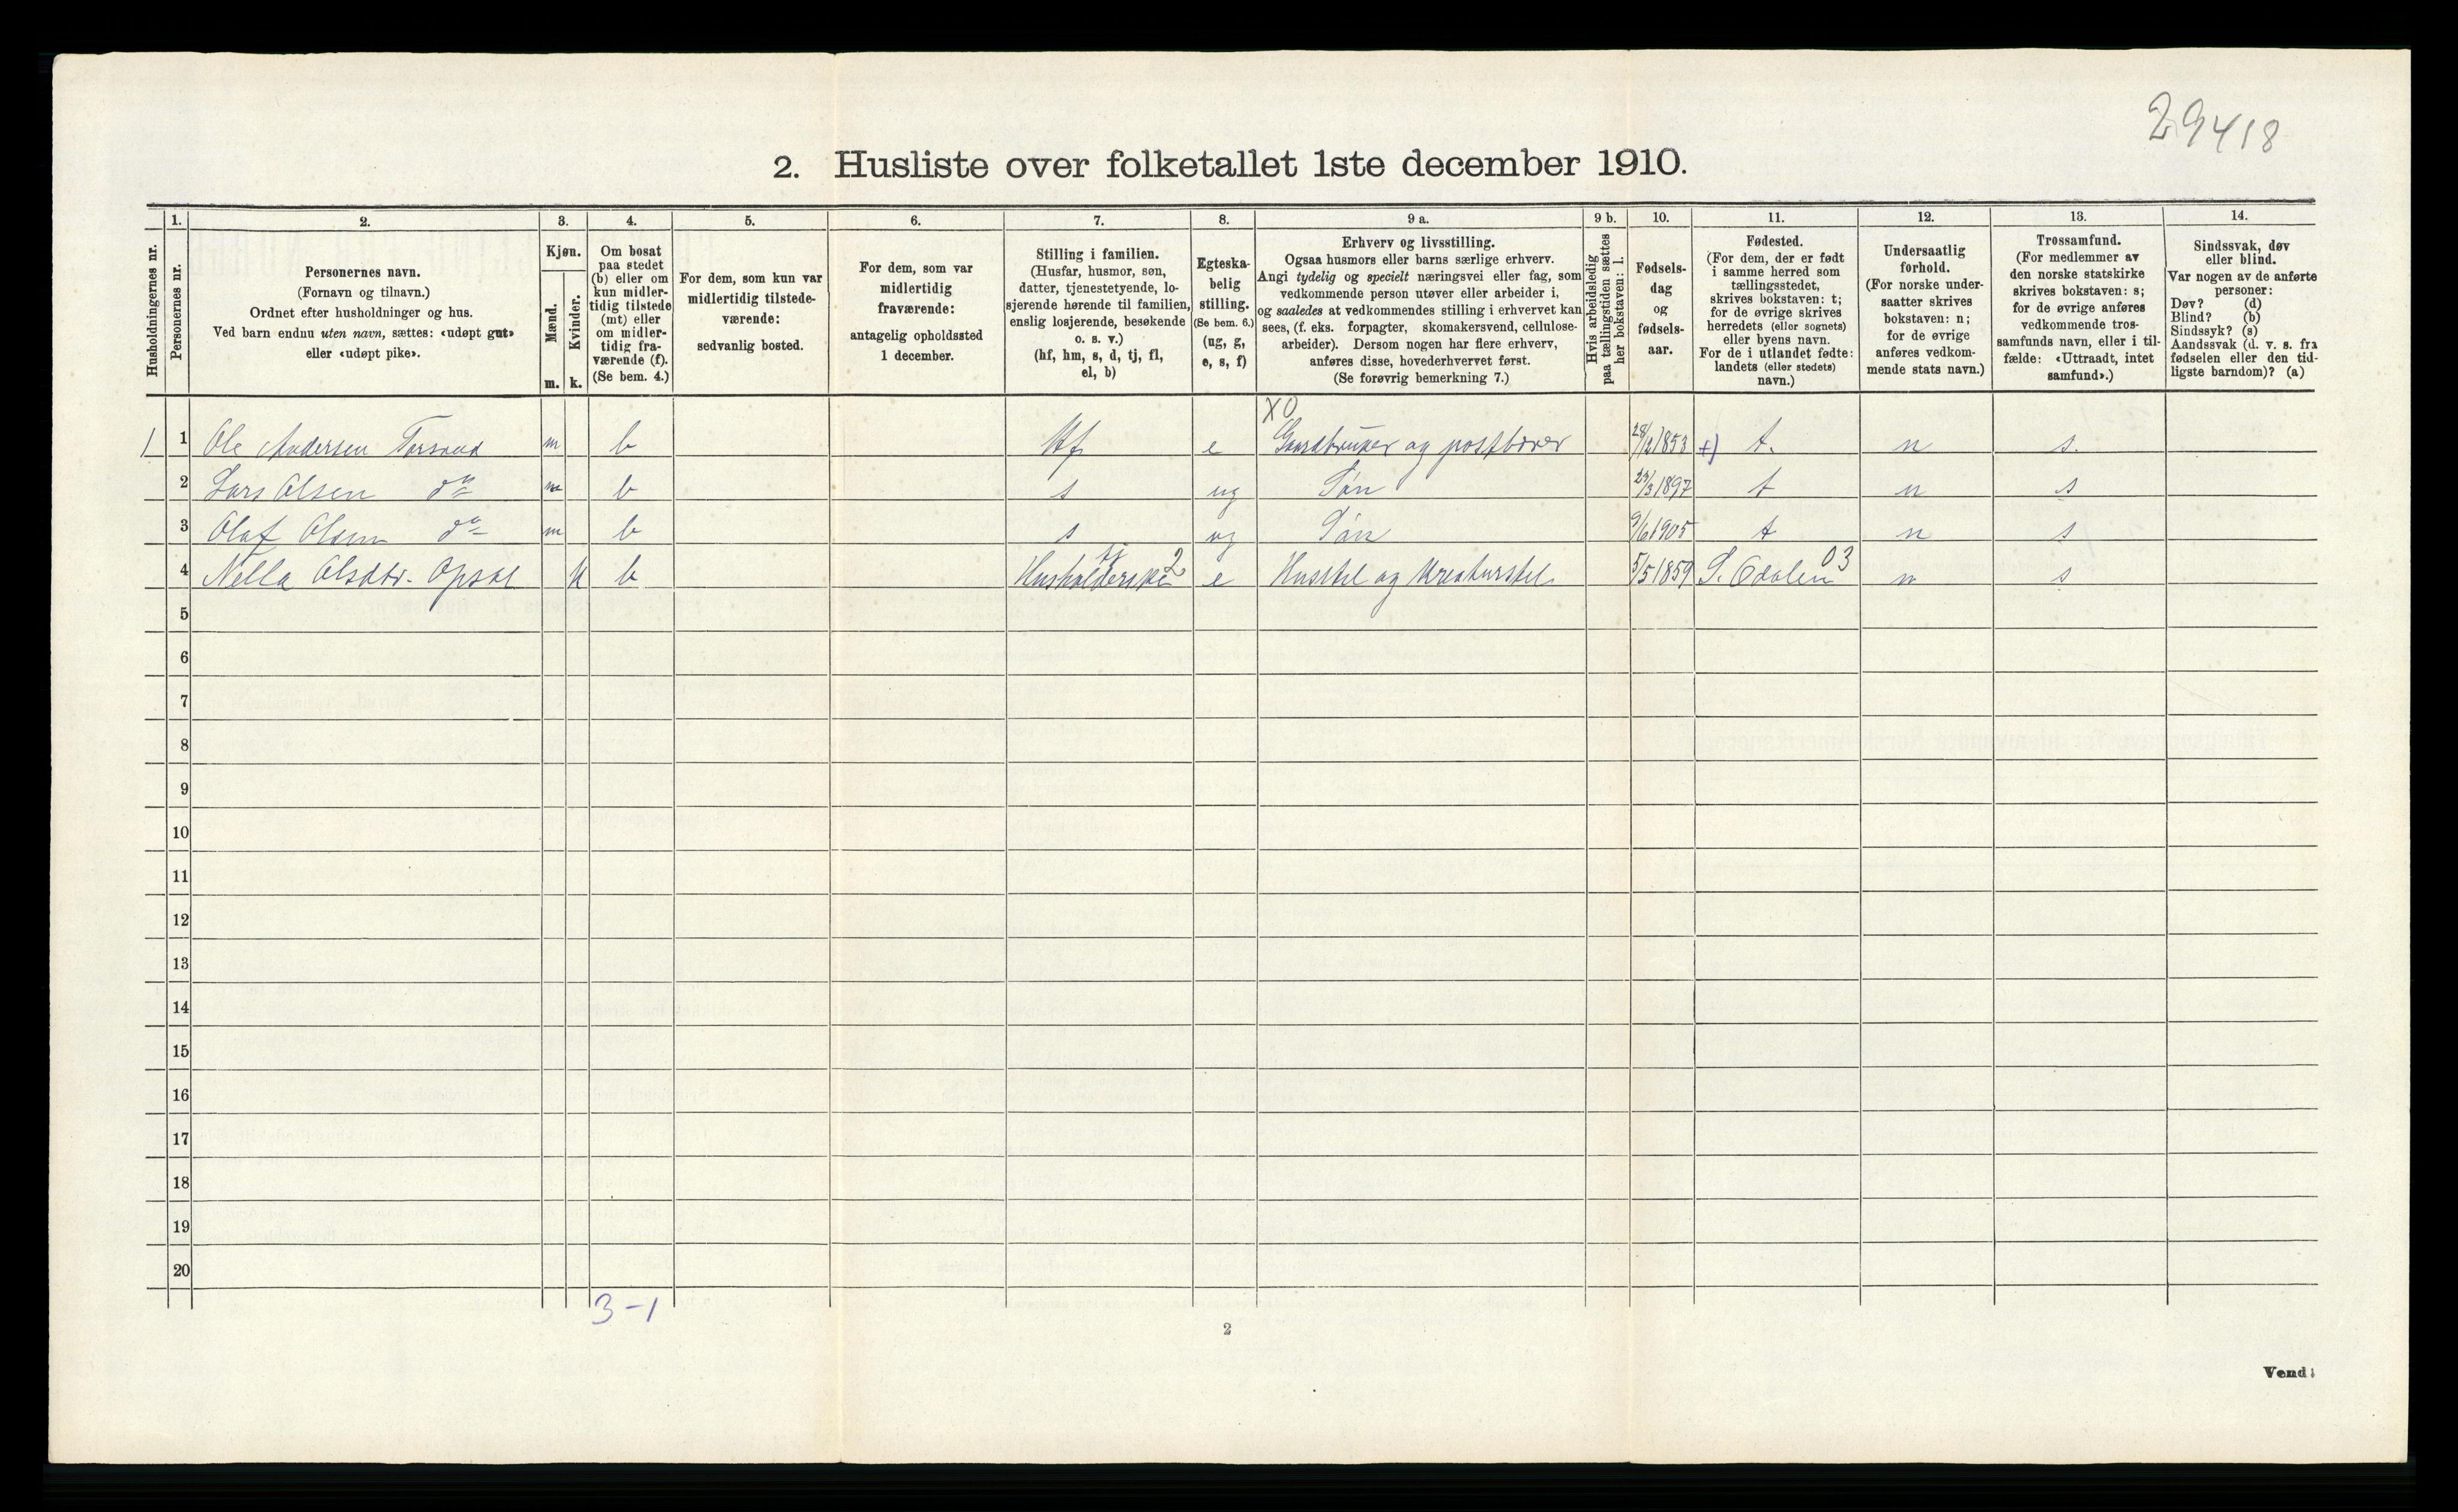 29418
2. Husliste over folketallet 1ste december 1910.
Husholdningernes nr.
1.
Personernes nr.
2.
Personernes navn.
(Fornavn og tilnavn.)
Ordnet efter husholdninger og hus.
Ved barn endnu uten navn, sættes: «udøpt gut»
eller «udøpt pike».
3.
Kjøn.
Mænd.
m.
Kvinder.
k.
4.
Om bosat
paa stedet
(b) eller om
kun midler-
tidig tilstede
(mt) eller
om midler-
tidig fra-
værende (f).
(Se bem. 4.)
5.
For dem, som kun var
midlertidig tilstede-
værende:
sedvanlig bosted.
6.
For dem, som var
midlertidig
fraværende:
antagelig opholdssted
1 december.
7.
Stilling i familien.
(Husfar, husmor, søn,
datter, tjenestetyende, lo-
sjerende hørende til familien,
enslig losjerende, besøkende
o. s. v.)
(hf, hm, s, d, tj, fl,
el, b)
8.
Egteska-
belig
stilling.
(Se bem. 6.)
(ug, g,
e, s, f)
9 a.
Erhverv og livsstilling.
Ogsaa husmors eller barns særlige erhverv.
Angi tydelig og specielt næringsvei eller fag, som
vedkommende person utøver eller arbeider i,
og saaledes at vedkommendes stilling i erhvervet kan
sees, (f. eks. forpagter, skomakersvend, cellulose-
arbeider). Dersom nogen har flere erhverv,
anføres disse, hovederhvervet først.
(Se forøvrig bemerkning 7.)
9 b.
Hvis arbeidsledig
paa tællingstiden sættes
her bokstaven: l.
10.
Fødsels-
dag
og
fødsels-
aar.
11.
Fødested.
(For dem, der er født
i samme herred som
tællingsstedet,
skrives bokstaven: t;
for de øvrige skrives
herredets (eller sognets)
eller byens navn.
For de i utlandet fødte:
landets (eller stedets)
navn.)
12.
Undersaatlig
forhold.
(For norske under-
saatter skrives
bokstaven: n;
for de øvrige
anføres vedkom-
mende stats navn.)
13.
Trossamfund.
(For medlemmer av
den norske statskirke
skrives bokstaven: s;
for de øvrige anføres
vedkommende tros-
samfunds navn, eller i til-
fælde: «Uttraadt, intet
samfund».)
14.
Sindssvak, døv
eller blind.
Var nogen av de anførte
personer:
Døv? (d)
Blind? (b)
Sindssyk? (s)
Aandssvak (d. v. s. fra
fødselen eller den tid-
ligste barndom)? (a)
X0
1 1 Ole Andersen m b Hf e Gaardbruker og postbærer 28/12 1853 +) t. n s.
2 Lars Olsen do m b s ug Søn 1897 t n s
3 Olaf Olsen do m b s ug Søn 9/6 1905 t n s
tj 2 03
4 Nella Olsdtr. Opsal k b Husholderske e Husstel og Kreaturstel 5/5 1859 S. Odalen n s
5
6
7
8
9
10
11
12
13
14
15
16
17
18
19
20
3-1
2
Vend!